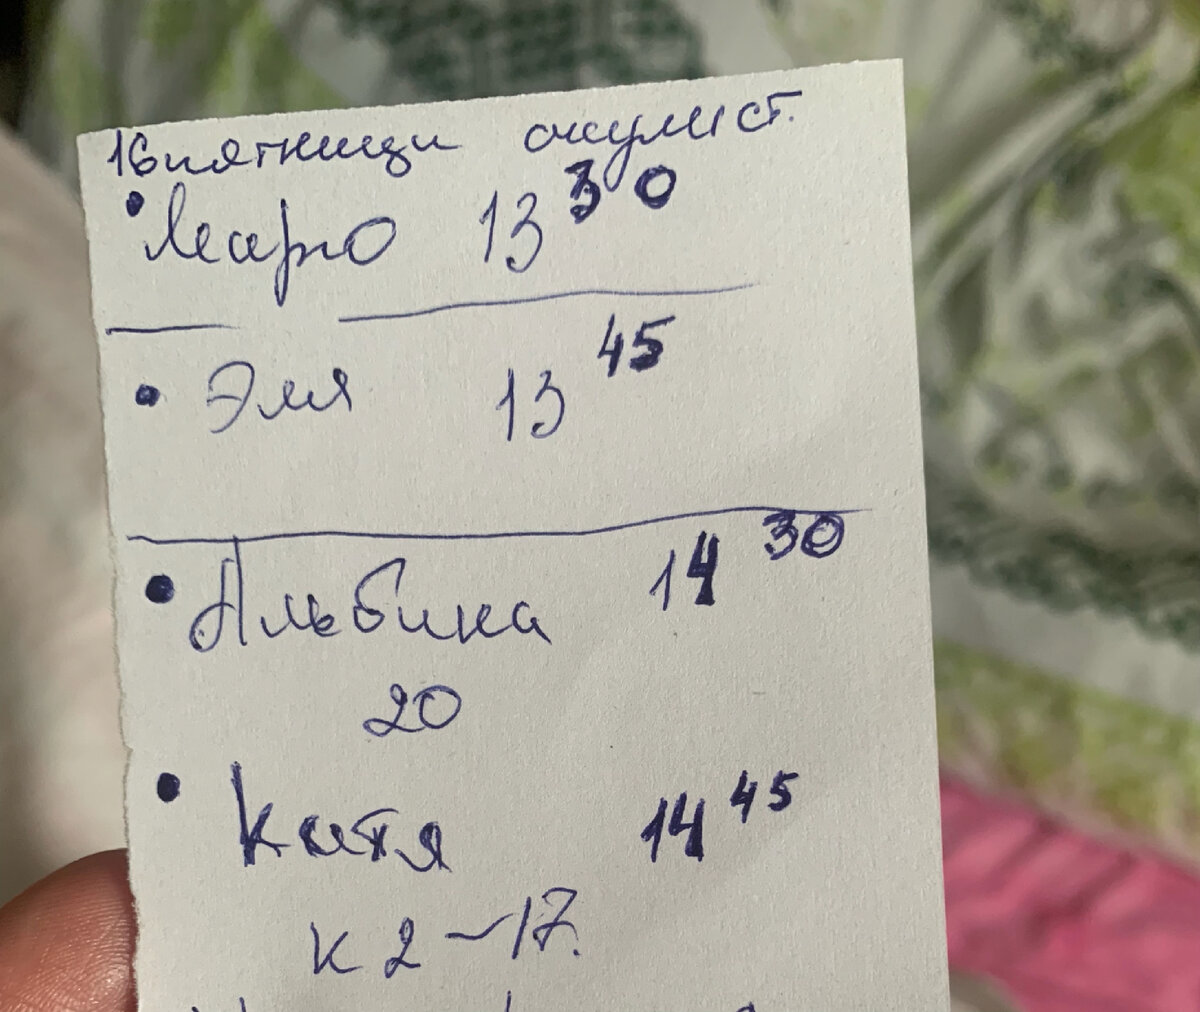 16 пятници окулист.
• Маро 13 30
• Эля 13 45
• Альбина 14 30
20
• Катя 14 45
К 2 – 17.